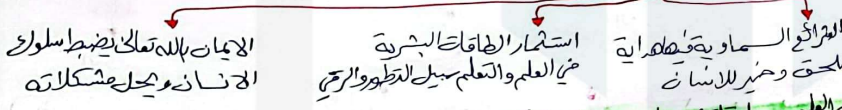 الشرائع السماوية فيها هداية
للحق وخير للانسان
استثمار الطاقات البشرية
في العلم والتعلم سبيل التطور والرقي
الايمان بالله تعالى يضبط سلوك
الانسان ويحل مشكلاته